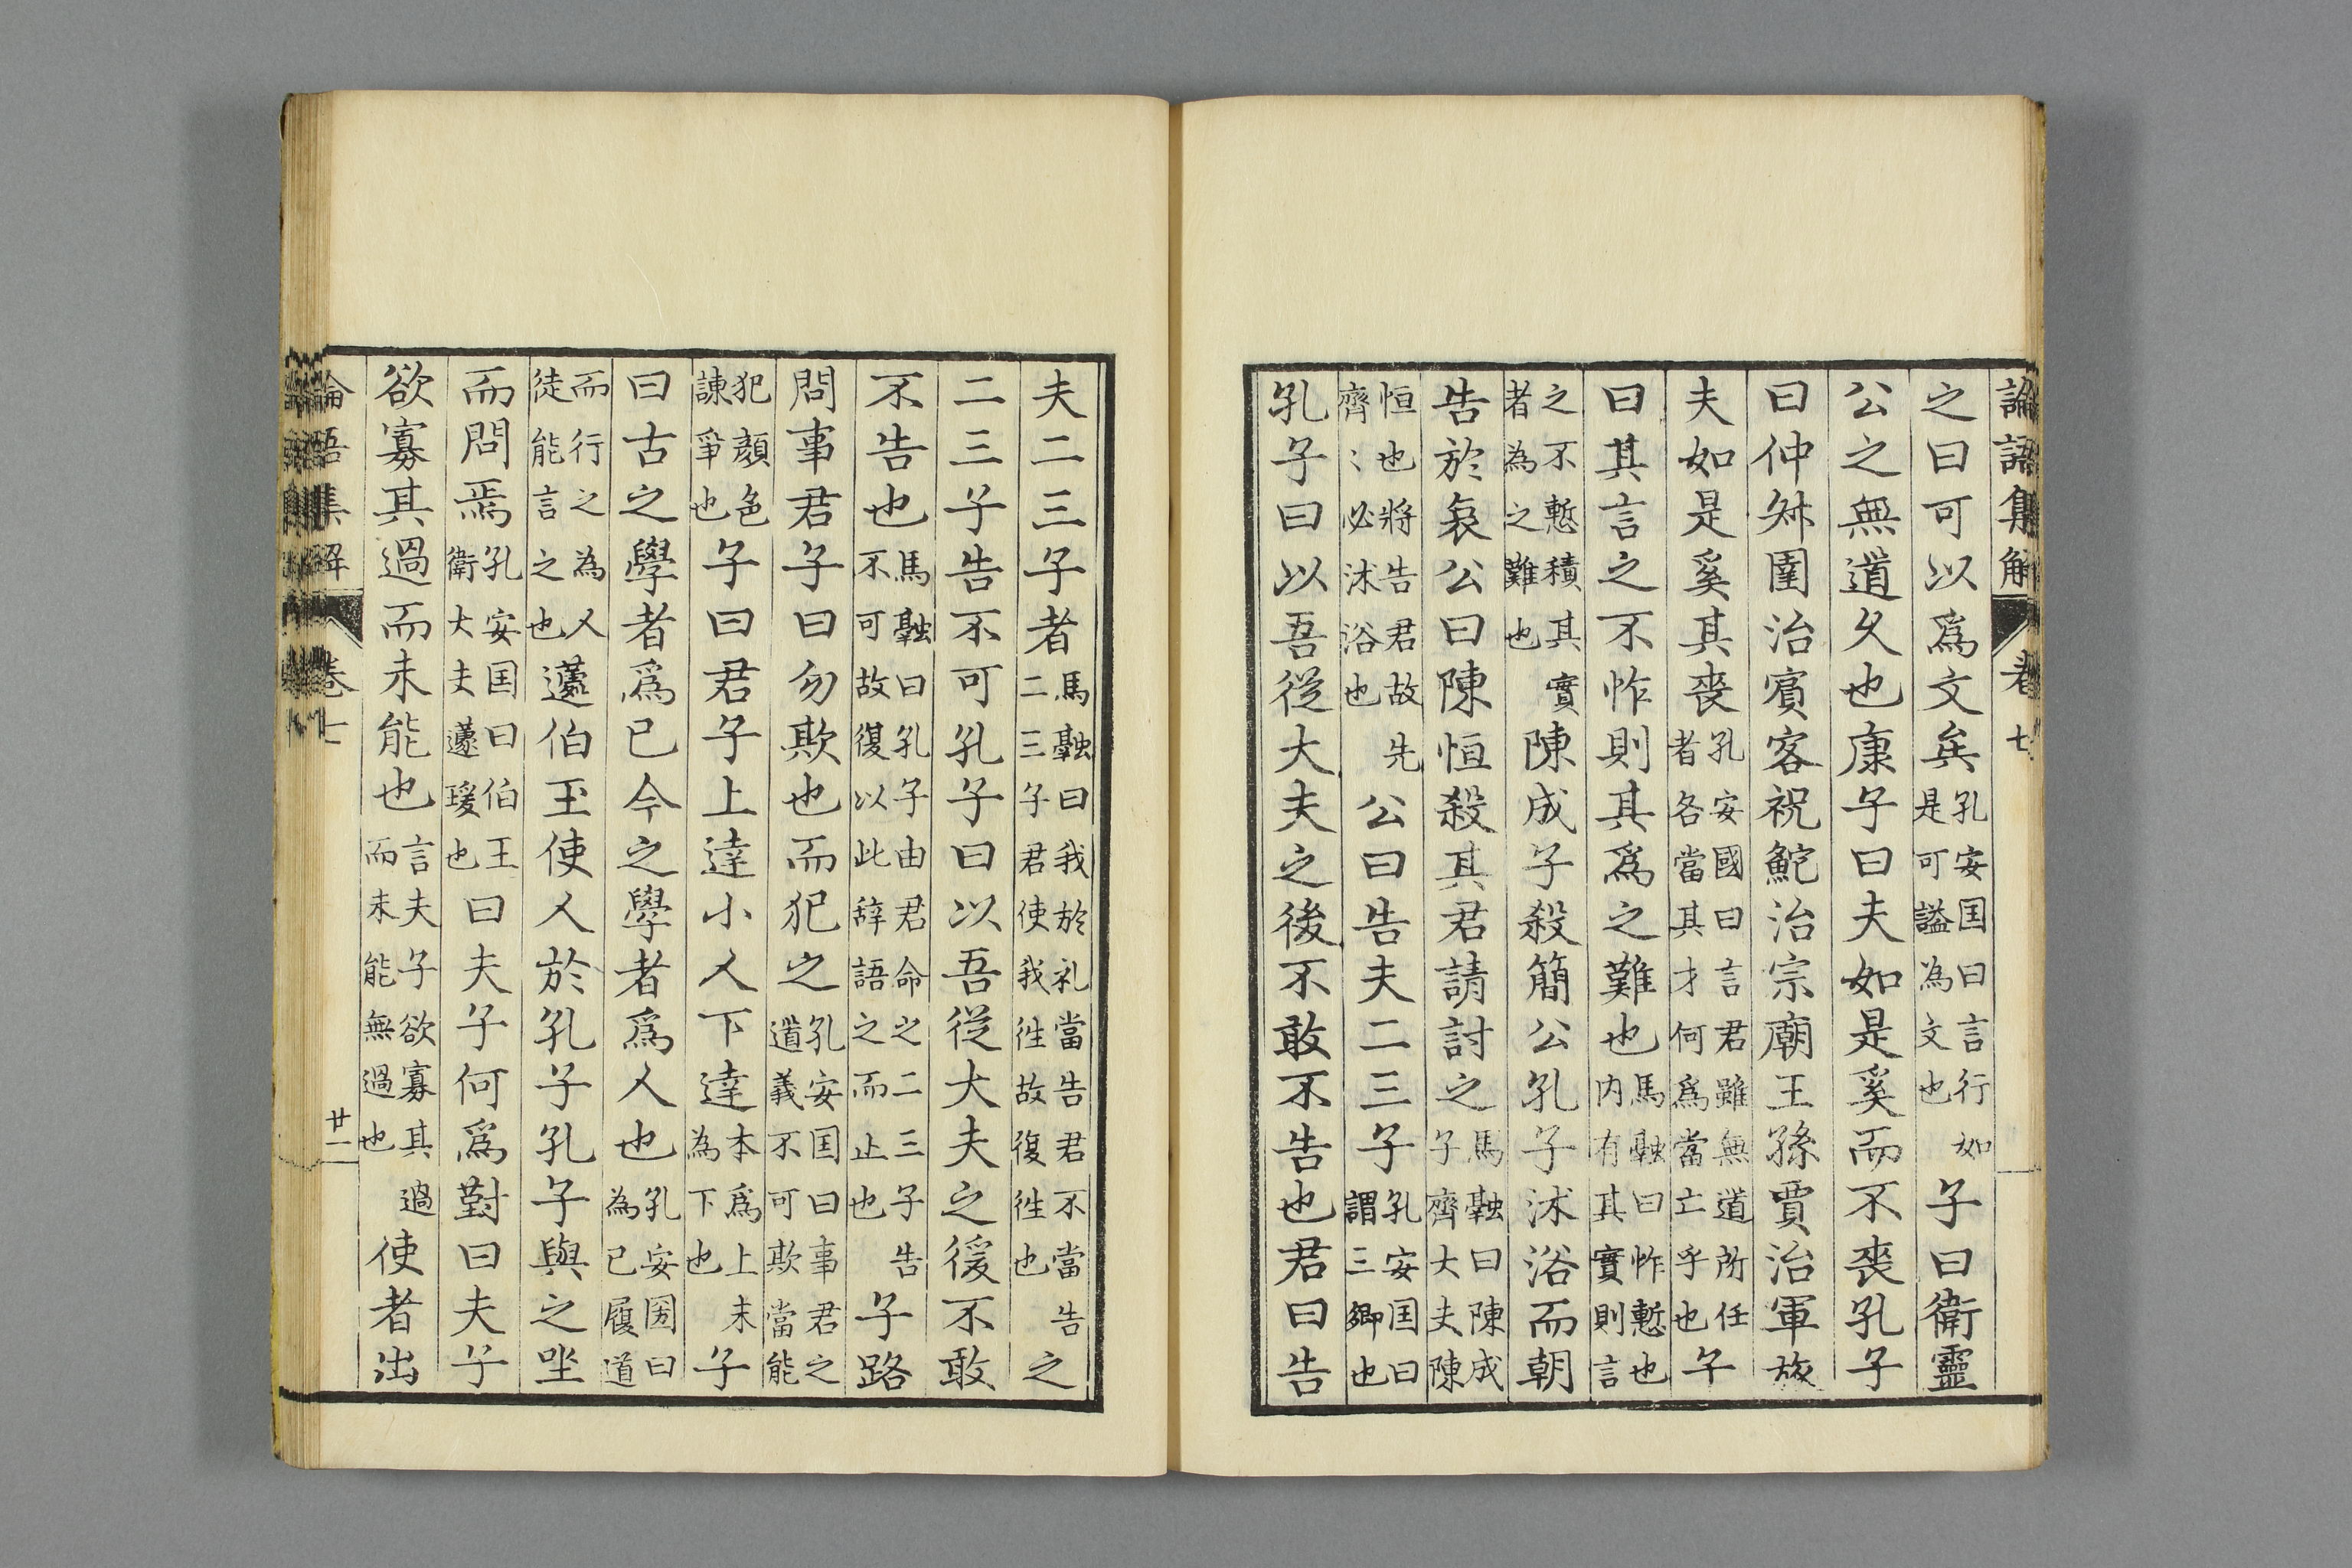 論語集解 卷七
之曰可以爲文矣孔安国曰言行如是可謚為文也子曰衛靈
公之無道久也康子曰夫如是奚而不喪孔子
曰仲叔圉治賓客祝鮀治宗廟王孫賈治軍旅
夫如是奚其喪孔安國曰言君雖無道所任者各當其才何爲當亡乎也子
曰其言之不怍則其爲之難也馬融曰怍慙也内有其實則言
之不慙積其實者為之難也陳成子殺簡公孔子沐浴而朝
告於哀公曰陳恒殺其君請討之馬融曰陳成子齊大夫陳
恒也將告君故先齊〻必沐浴也公曰告夫二三子孔安国曰謂三卿也
孔子曰以吾從大夫之後不敢不告也君曰告
夫二三子者馬融曰我於礼當告君不當告二三子君使我徃故復徃也之
二三子告不可孔子曰以吾從大夫之後不敢
不告也馬融曰孔子由君命之二三子告不可故復以此辞語之而止也子路
問事君子曰勿欺也而犯之孔安国曰事君之道義不可欺當能
犯顔色諫爭也子曰君子上達小人下達本爲上末為下也子
曰古之學者爲已今之學者爲人也孔安国曰為已履道
而行之為人徒能言之也蘧伯玉使人於孔子孔子與之坐
而問焉孔安国曰伯王衛大夫蘧瑗也曰夫子何爲對曰夫子
欲寡其過而未能也言夫子欲寡其過而未能無過也使者出
論語集解 卷七 廿一